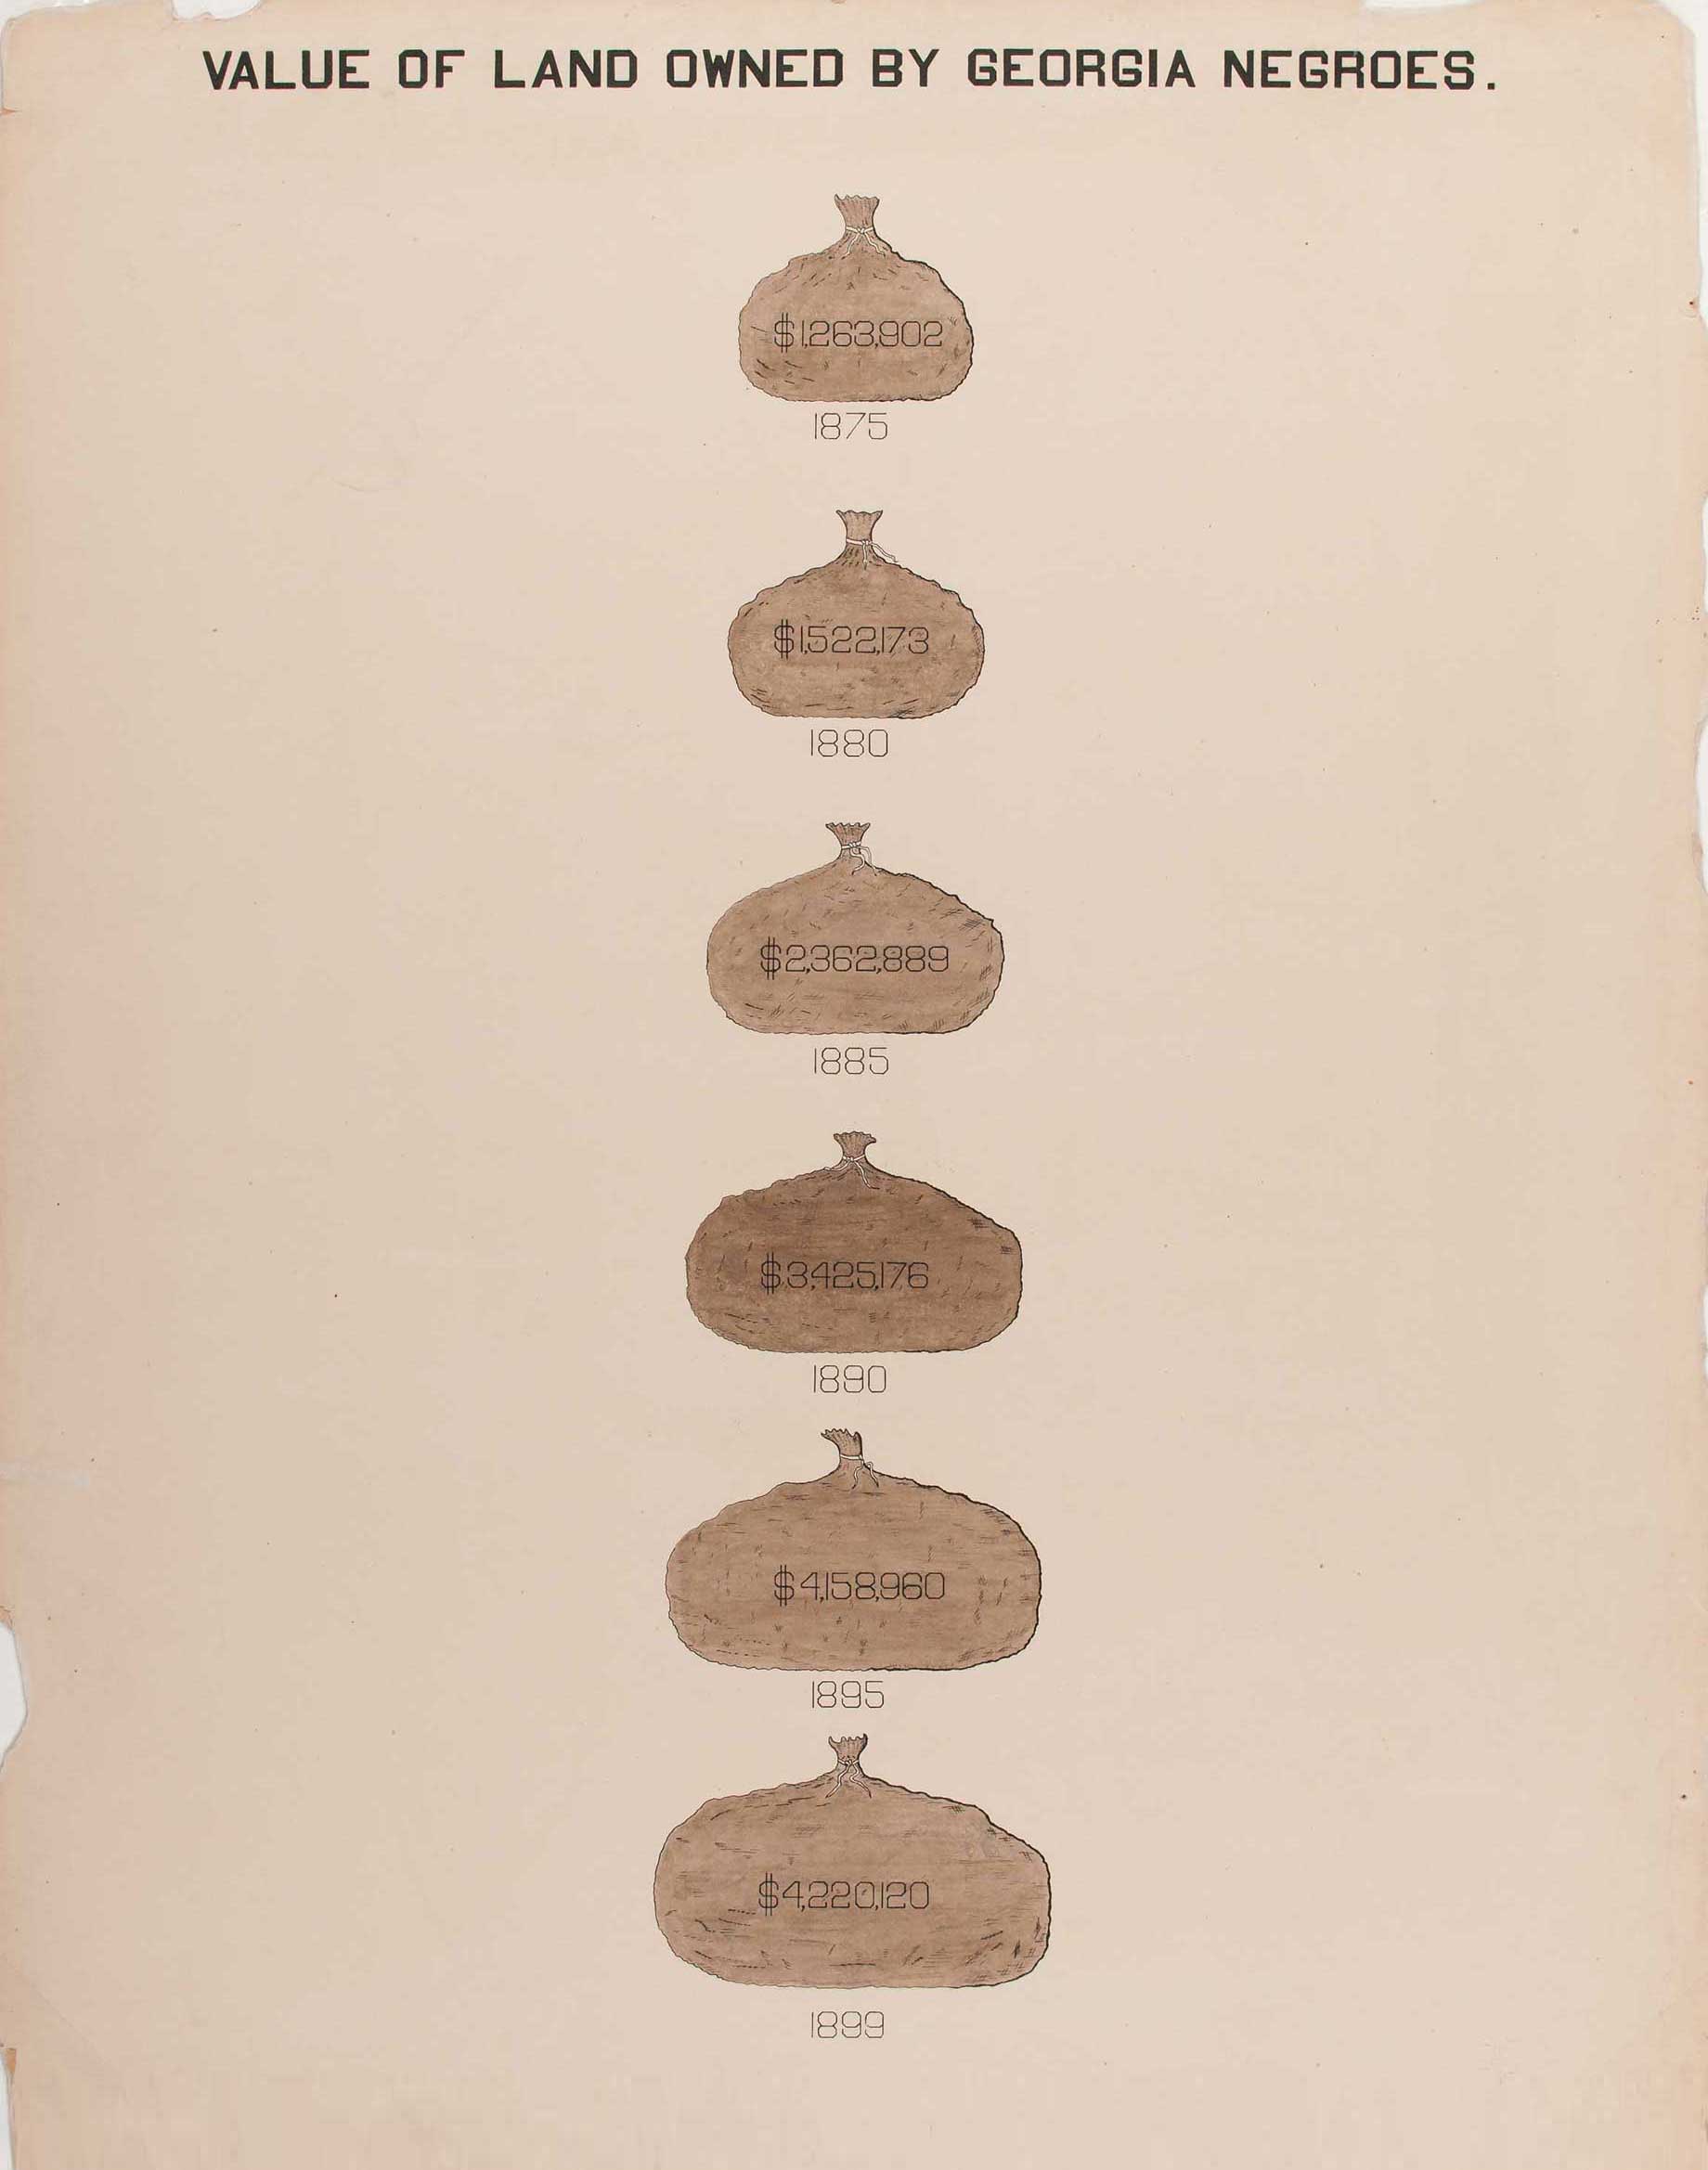 VALUE OF LAND OWNED BY GEORGIA NEGROES.
$1,263,902
1875
$1,522,173
1880
$2,362,889
1885
$3,425,176
1890
$4,158,960
1895
$4,220,120
1899